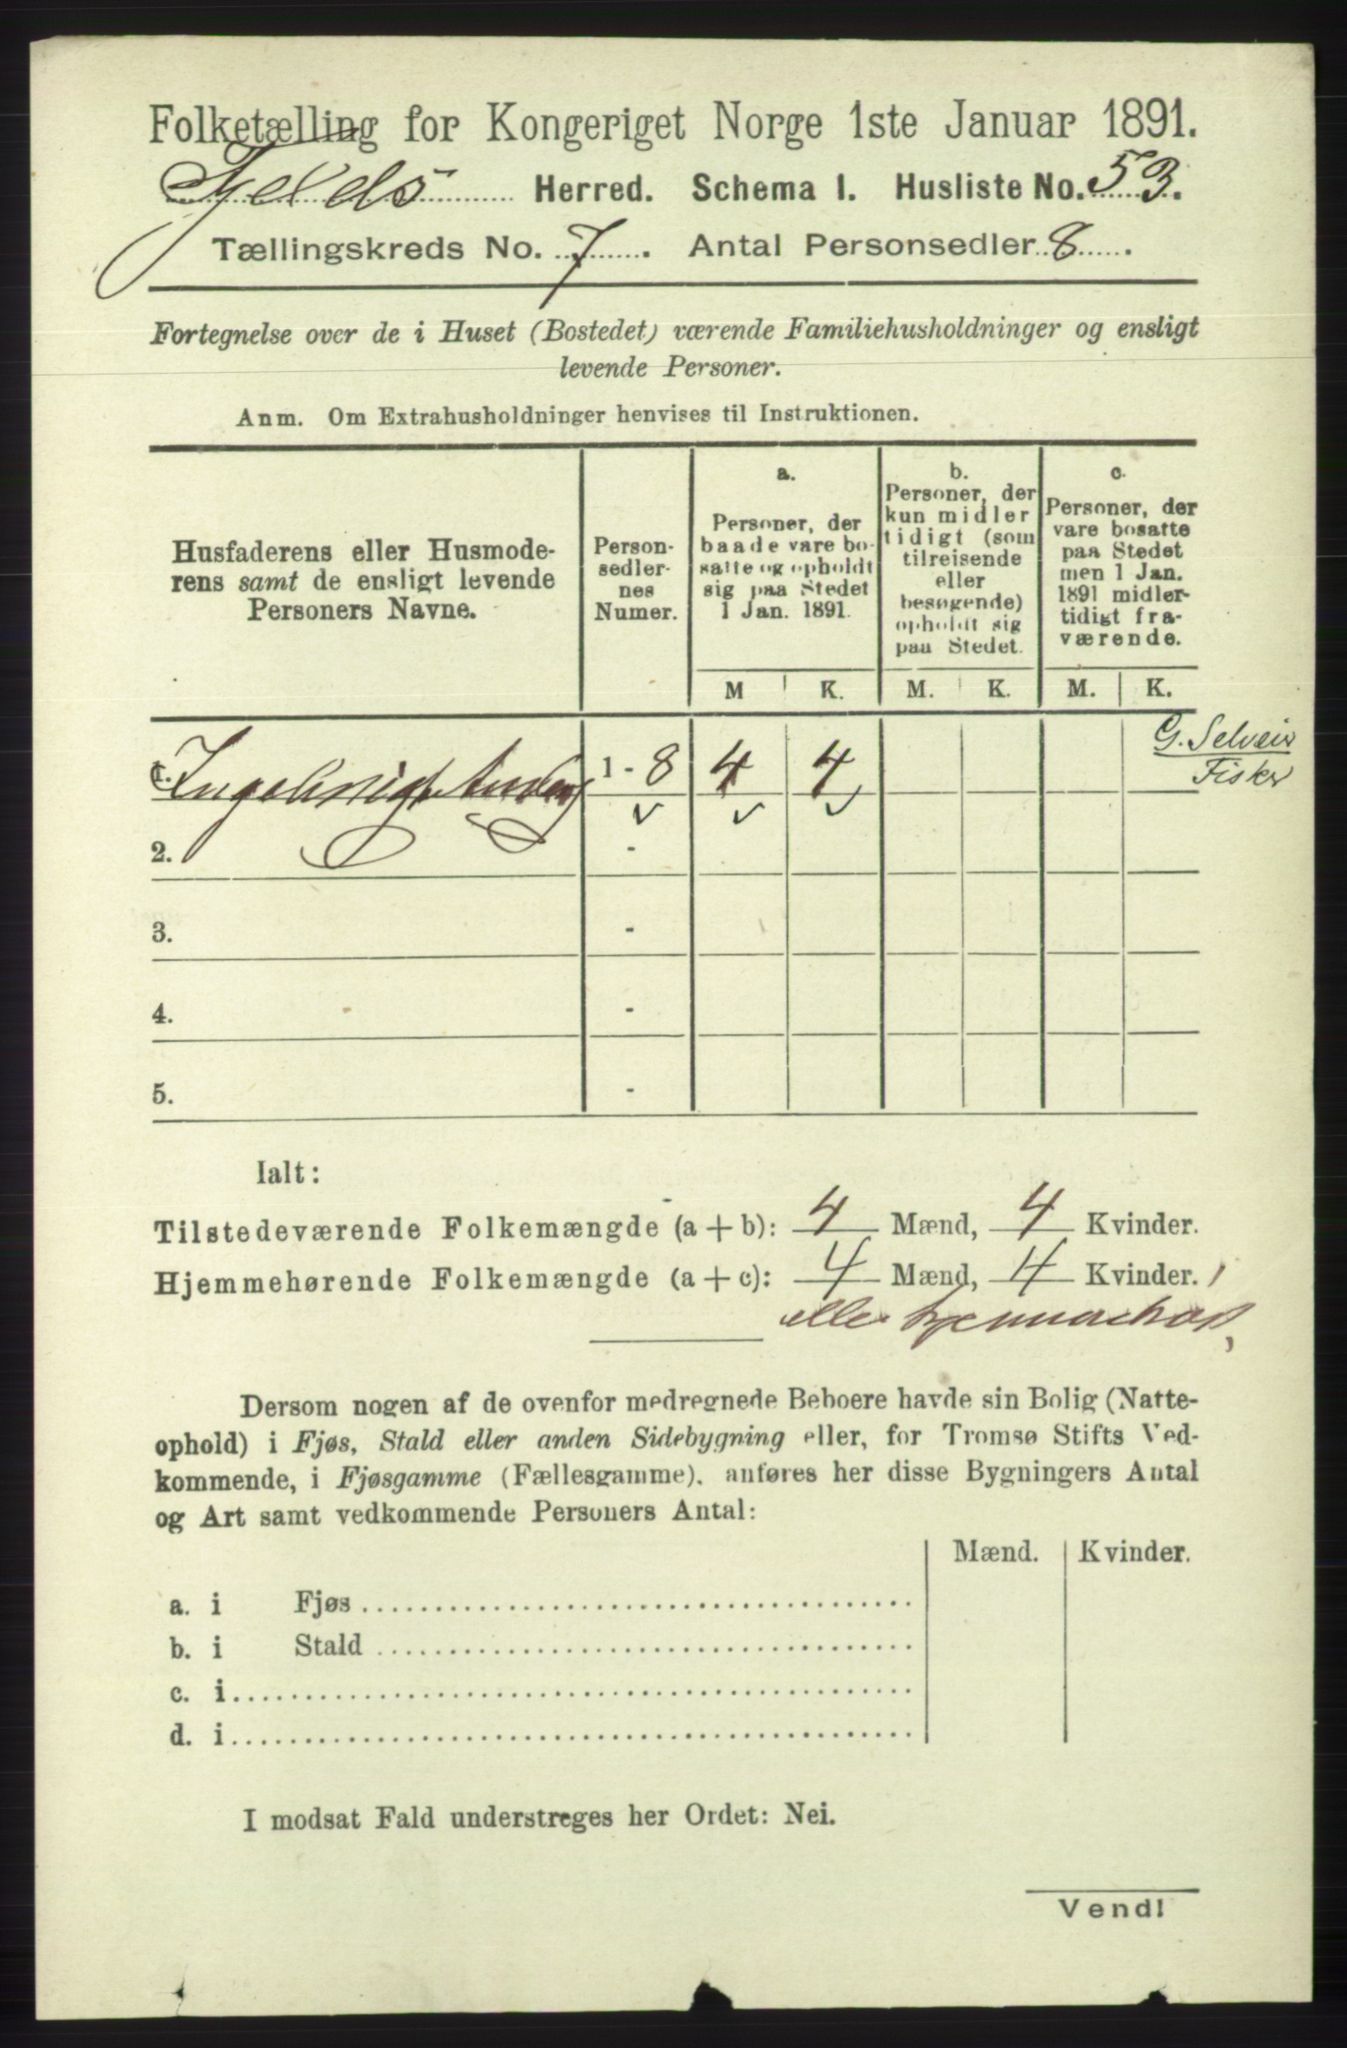 Folketælling for Kongeriget Norge 1ste Januar 1891.
Herred. Schema I. Husliste No. 53.
Tællingskreds No. 7. Antal Personsedler 8.
Fortegnelse over de i Huset (Bostedet) værende Familiehusholdninger og ensligt
levende Personer.
Anm. Om Extrahusholdninger henvises til Instruktionen.
Husfaderens eller Husmode-
rens samt de ensligt levende
Personers Navne.
Person-
sedler-
nes
Numer.
a.
Personer, der
baade vare bo-
satte og opholdt
sig paa Stedet
1 Jan. 1891.
b.
Personer, der
kun midler
tidigt (som
tilreisende
eller
besøgende)
opholdt sig
paa Stedet.
c.
Personer, der
vare bosatte
paa Stedet
men 1 Jan.
1891 midler-
tidigt fra-
værende.
M K. M. K. M. K.
G. Selveier
Fisker
1. Ingebrigt 1 - 8 4 4
2. -
3. -
4. -
5. -
Ialt:
Tilstedeværende Folkemængde (a + b): 4 Mænd, 4 Kvinder.
Hjemmehørende Folkemængde (a + c): 4 Mænd, 4 Kvinder.
Dersom nogen af de ovenfor medregnede Beboere havde sin Bolig (Natte-
ophold) i Fjøs, Stald eller anden Sidebygning eller, for Tromsø Stifts Ved-
kommende, i Fjøsgamme (Fællesgamme), anføres her disse Bygningers Antal
og Art samt vedkommende Personers Antal:
Mænd. Kvinder.
a. i Fjøs
b. i Stald
c. i
d. i
I modsat Fald understreges her Ordet: Nei.
Vend!